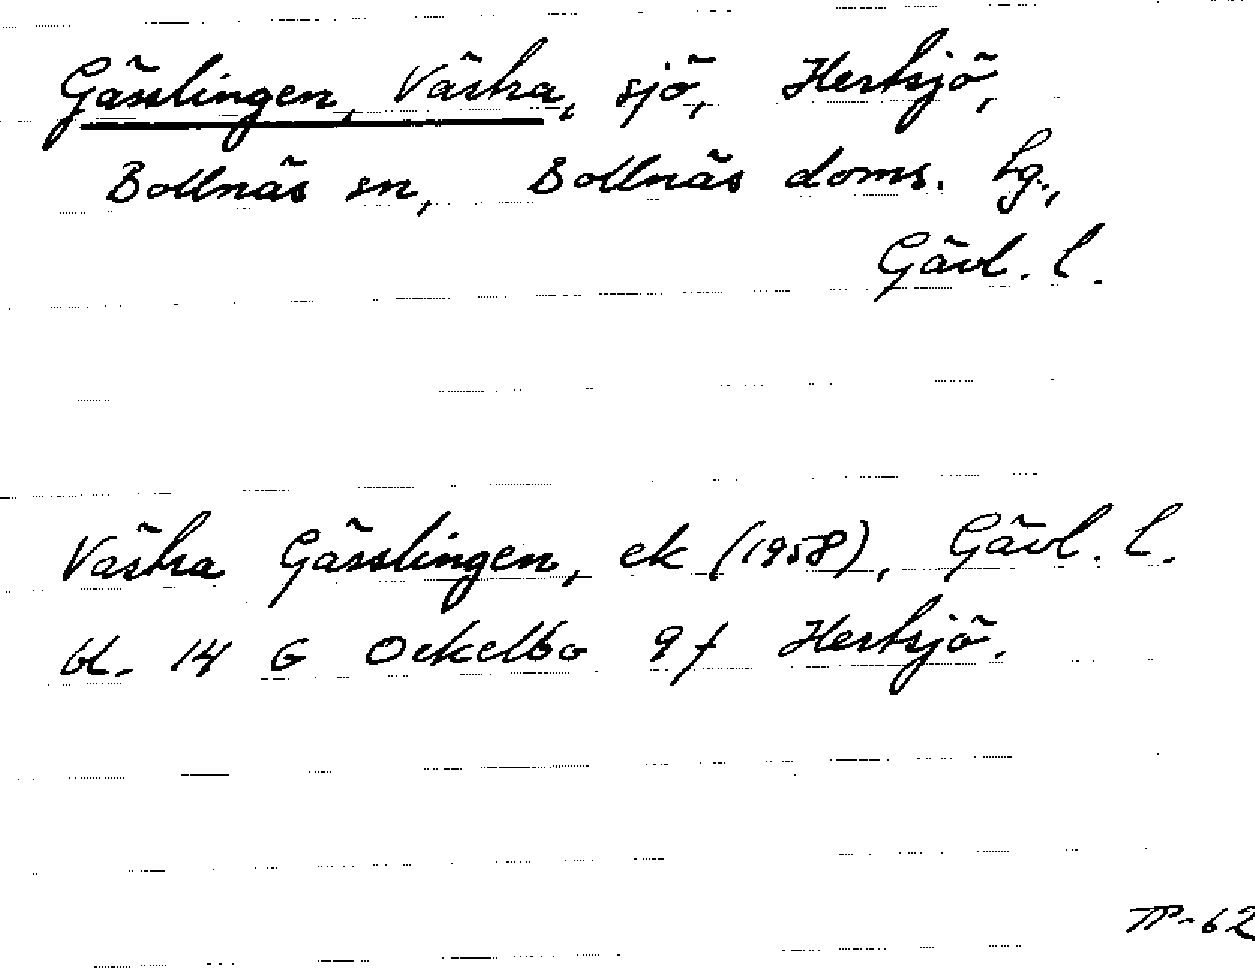 Gässlingen, Västra, sjö, Hertsjö,
Bollnäs sn, Bollnäs doms. hg.,
Gävl. l.
Västra Gässlingen, ek (1958), Gävl. l.
bl. 14 G Ockelbo 9 f Hertsjö.
TP-62